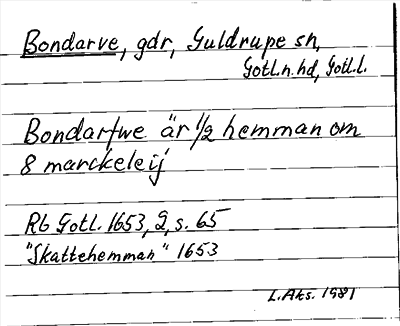 Bondarve, gdr, Guldrupe sn,
Gotl.n.hd, Gotl.l.
Bondarfwe är 1/2 hemman om
8 marckeleij
Rb Gotl. 1653, 2, s. 65
"Skattehemman" 1653
L. Aks. 1981